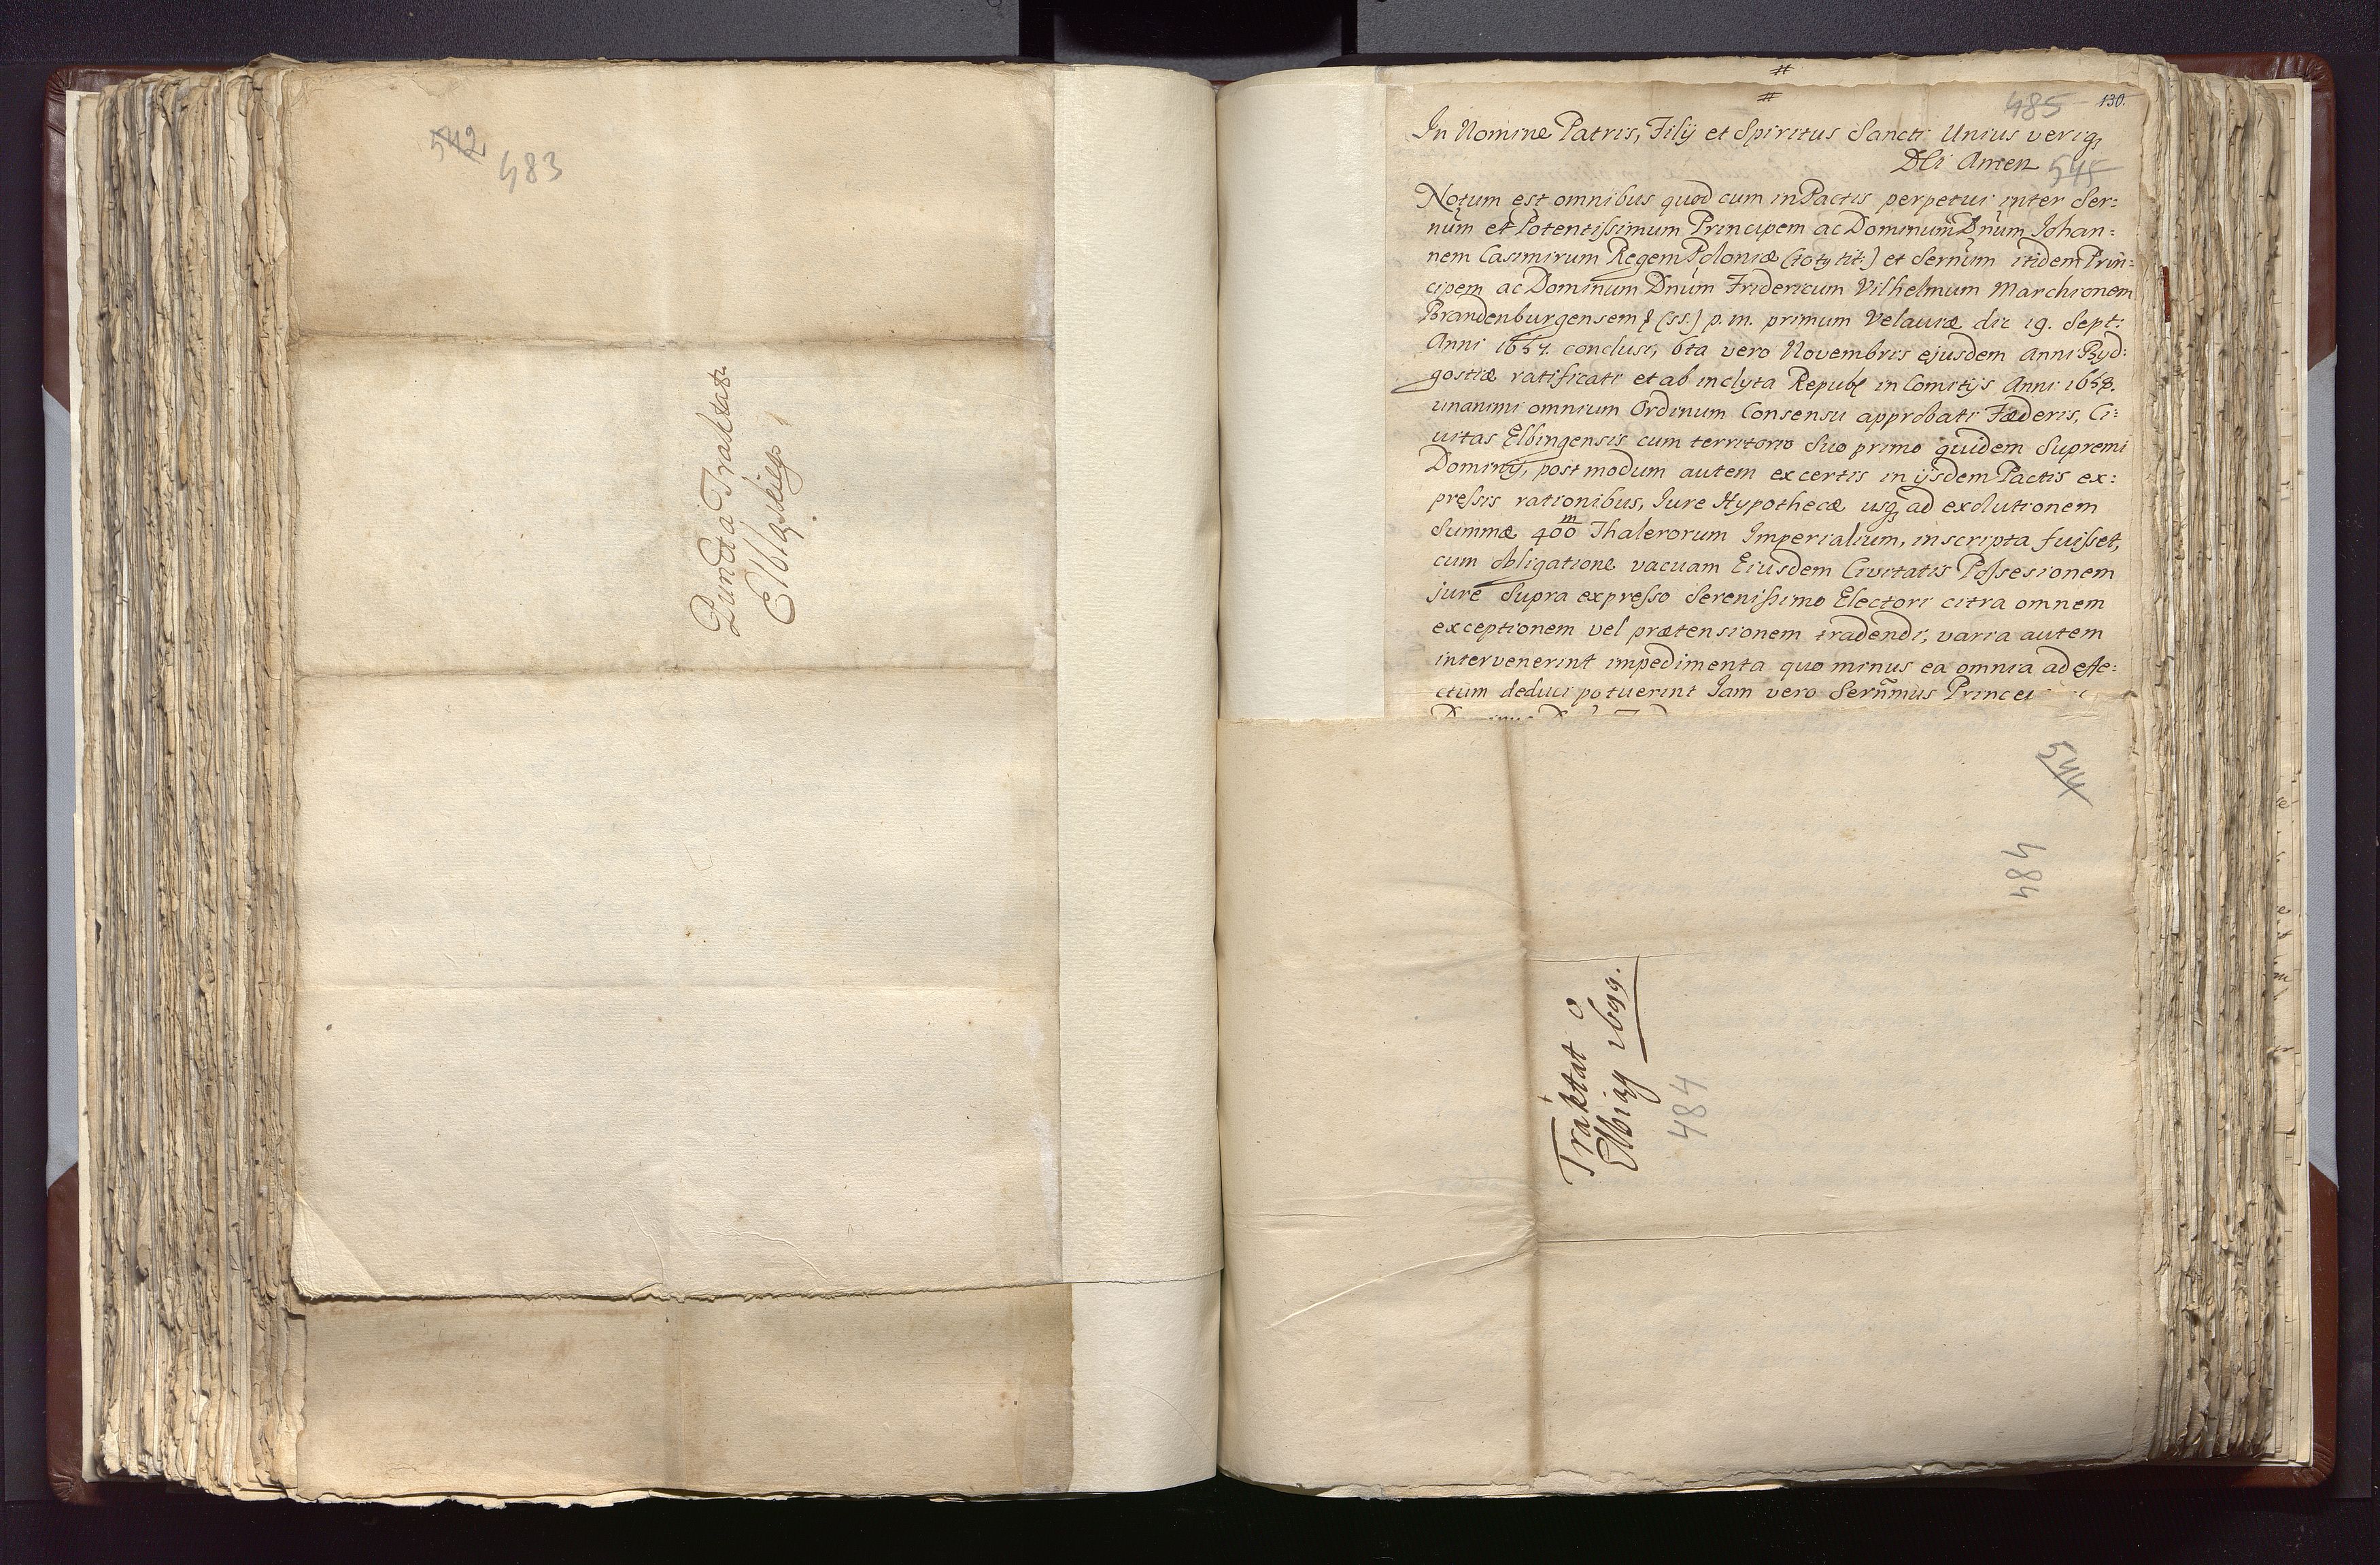 542
483
Puncta Traktatu
Elbląskiego
#
#
485 130.
In Nomine Patris, Filij et Spiritus Sancti Unius veriq;
DEi Amen
545
Notum est omnibus quod cum in Pactis perpetui inter Ser:
num et Potentissimum Principem ac Dominum Dnum Johan:
nem Casimirum Regem Poloniæ (toty tit:) et Sernum itidem Prin:
cipem ac Dominum Dnum Fridericum Vilhelmum Marchionem
Brandenburgensem (ss.) p. m. primum Velaviæ die 19. Sept:
Anni 1657. conclusi, 6ta vero Novembris ejusdem Anni Byd:
gostiæ ratificati et ab inclyta Republ in Comitijs Anni 1658.
unanimi omnium Ordinum Consensu approbati Fæderis, Ci:
uitas Elbingensis cum territorio Suo primo quidem Supremi
Dominij, postmodum autem ex certis in ijsdem Pactis ex:
pressis rationibus, Jure Hypothecæ usq; ad exolutionem
Summæ 400 m Thalerorum Imperialium, inscripta fuisset,
cum obligatione vacuam Eiusdem Civitatis Possesionem
jure Supra expresso Serenissimo Electori citra omnem
exceptionem vel prætensionem tradendi, varia autem
intervenerint impedimenta quo minus ea omnia ad effe:
ctum deduci potuerint Jam vero Sernmus
544
484
Traktat o
Elbiąg 1699.
484